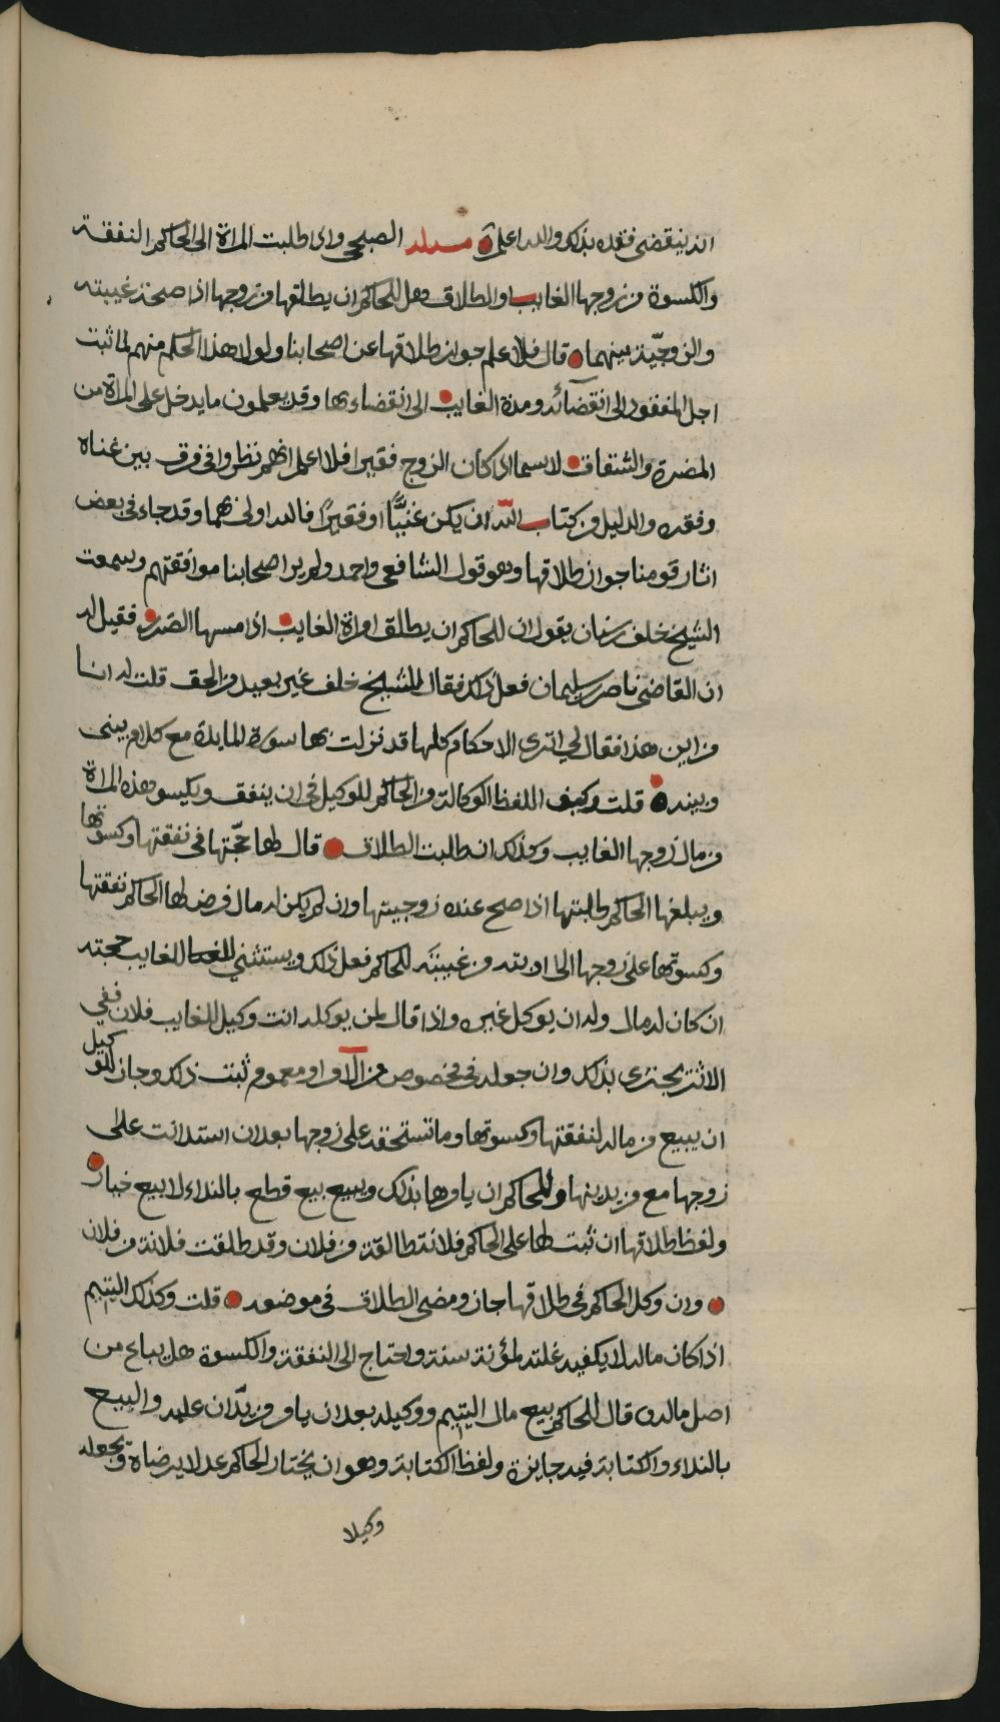 انه ينقضي فقده بذلك والله اعلم مسئلة الصبحي واذا طلبت المراة الى الحاكم النفقة
والكسوة من زوجها الغايب او الطلاق وهل للحاكم ان يطلقها من زوجها اذا صحت غيبته
والزوجيّة بينهما قال فلا اعلم جواز طلاقها عن اصحابنا ولولا هذا الحكم منهم لما ثبت
اجل المفقود الى انقضائه ومدة الغايب الى انقضاءها وقد يعلمون ما يدخل على المراة من
المضرة والشقاق لا سيما اذا كان الزوج فقيرا فلا اعلم انهم نظروا في فرق بين غناه
وفقره والدليل من كتاب اللّه ان يكن غنيًّا او فقيرًا فالله اولى بهما وقد جاء في بعض
اثار قومنا جواز طلاقها وهو قول الشافعي واحمد ولم ير اصحابنا موافقتهم وسمعت
الشيخ خلف بن سنان يقول ان للحاكم ان يطلق امراة الغايب اذا مسها الضرر فقيل له
ان القاضي ناصر بن سليمان فعل ذلك فقال الشيخ خلف غير بعيد من الحق قلت له انا
من اين هذا فقال لي اترى الاحكام كلها قد نزلت بها سورة المايدة مع كلام بيني
وبينه قلت وكيف اللفظ الوكالة من الحاكم للوكيل في ان ينفق ويكسو هذه المراة
من مال زوجها الغايب وكذلك ان طلبت الطلاق قال لها حجّتها في نفقتها وكسوتها
ويبلغها الحاكم طلبتها اذا صح عنده زوجيتها وان لم يكن له مال فرض لها الحاكم نفقتها
وكسوتها على زوجها الى اوبته من غيبته للحاكم فعل ذلك ويستثني للغايب حجته
ان كان له مال وله ان يوكل غيره واذا قال لمن يوكله انت وكيل للغايب فلان ففي
الاثر يجتزى بذلك وان جعله في مخصوص من الامر او معموم ثبت ذلك وجاز للوكيل
ان يبيع من ماله لنفقتها وكسوتها وما تستحقه على زوجها بعد ان استدانت على
زوجها مع من يدينها وللحاكم ان يامرها بذلك ويبيع بيع قطع بالنداء لا بيع خيار
ولفظ طلاقها ان ثبت لها على الحاكم فلانة طالقة من فلان وقد طلقت فلانة من فلان
وان وكل الحاكم في طلاقها جاز ومضى الطلاق في موضوعه قلت وكذلك اليتيم
اذا كان ماله لا يكفيه غلته لمؤنة سنة واحتاج الى النفقة والكسوة هل يباع من
اصل ماله قال للحاكم بيع مال اليتيم ووكيله بعد ان يامر من يدّان عليه والبيع
بالنداء والكتابة فيه جايزة ولفظ الكتابة وهو ان يختار الحاكم عدلا يرضاه ويجعله
وكيلا